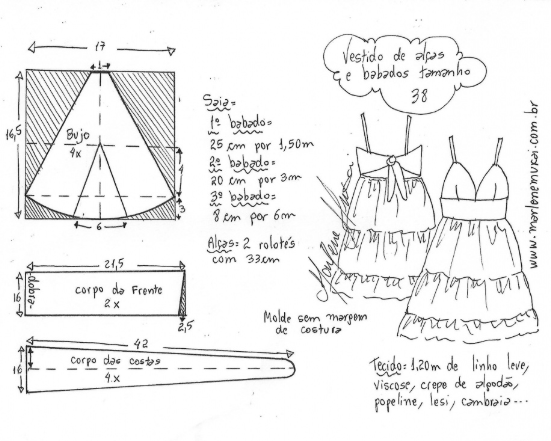 17
1
16,5
Bujo
4x
4
3
6
21,5
dobra
16
corpo da Frente
2x
2,5
42
16
corpo das costas
4x
Saia=
1º babado=
25 cm por 1,50m
2º babado=
20 cm por 3m
3º babado=
8 cm por 6m
Alças= 2 rolotês
com 33cm
Vestido de alças
e babados tamanho
38
Marlene Mukai
www.marlenemukai.com.br
Molde sem margem
de costura
Tecido= 1,20m de linho leve,
viscose, crepe de algodão,
popeline, lesi, cambraia...